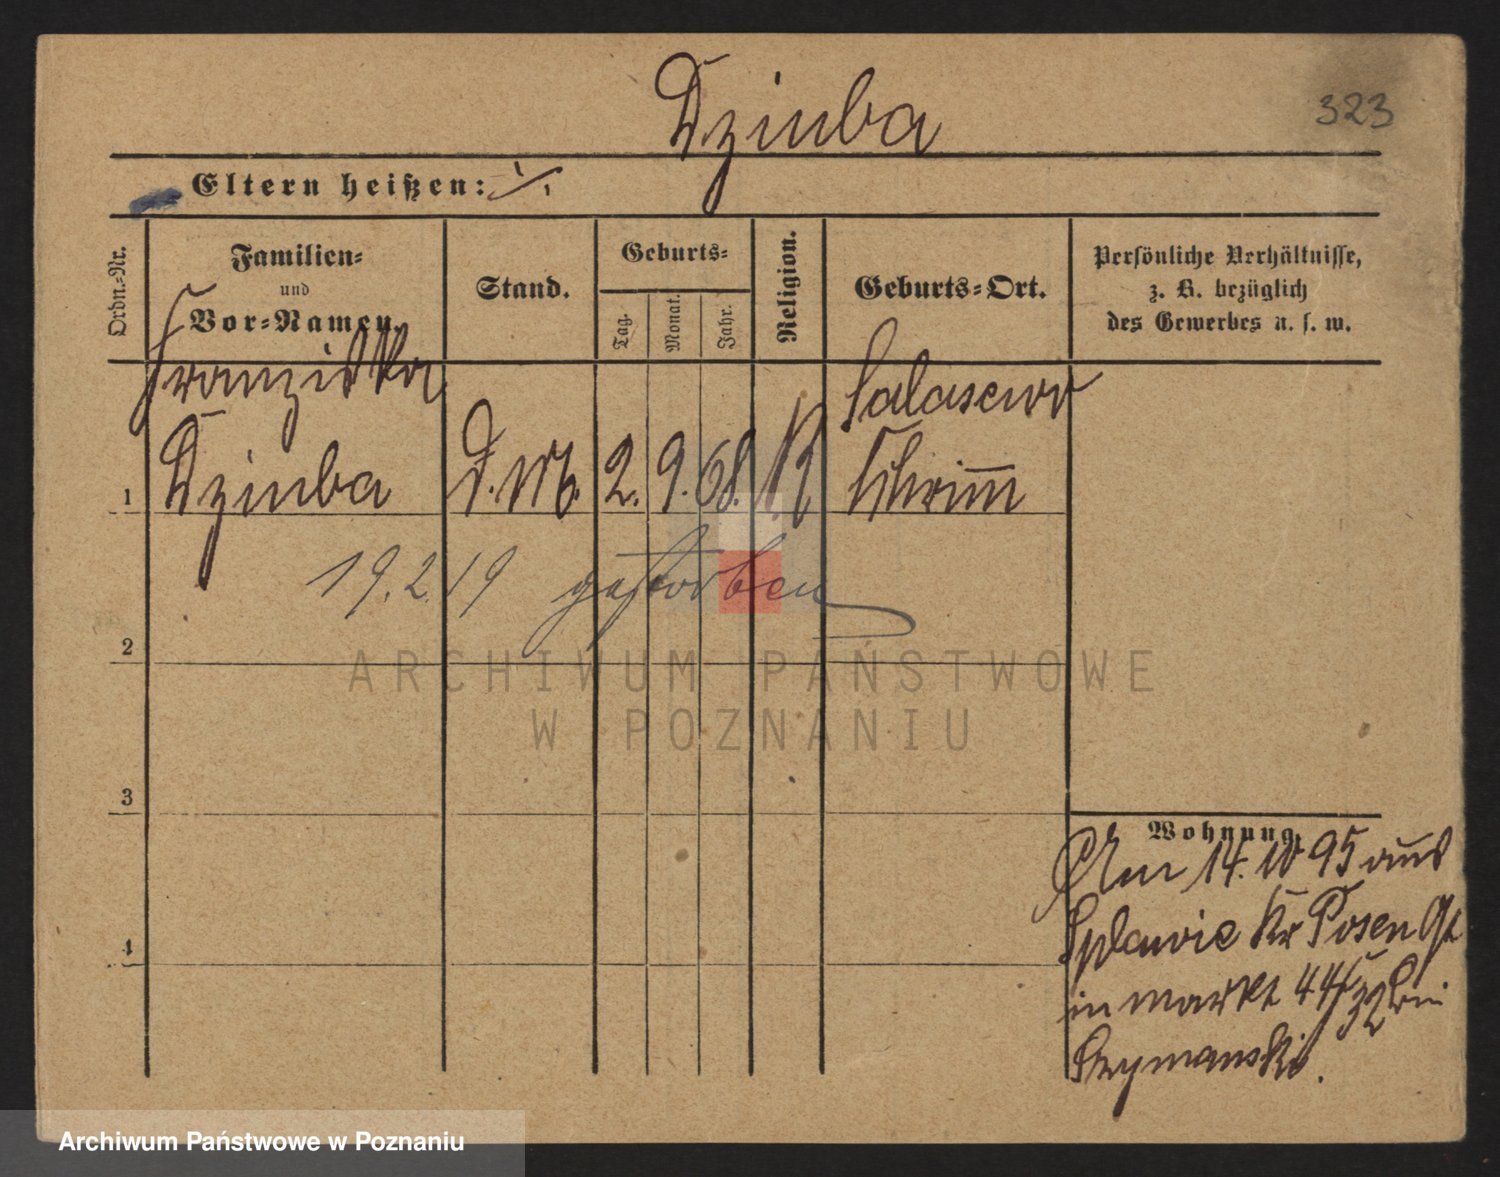 Dziuba
323
Eltern heißen: ./.
Ordn.-Nr.
Familien-
und
Vor-Namen.
Stand.
Geburts-
Tag.
Monat.
Jahr.
Religion.
Geburts-Ort.
Persönliche Verhältnisse,
z. B. bezüglich
des Gewerbes u. s. w.
Franziska
Dziuba
1
D. 2. 9. 68. K
Schrimm
19.2.19 gestorben
2
3
4
Wohnung.
Am 14. 10 95 aus
Splawie Kr Posen
in markt 44 bei
Szymanski.
ARCHIWUM PAŃSTWOWE
W POZNANIU
Archiwum Państwowe w Poznaniu